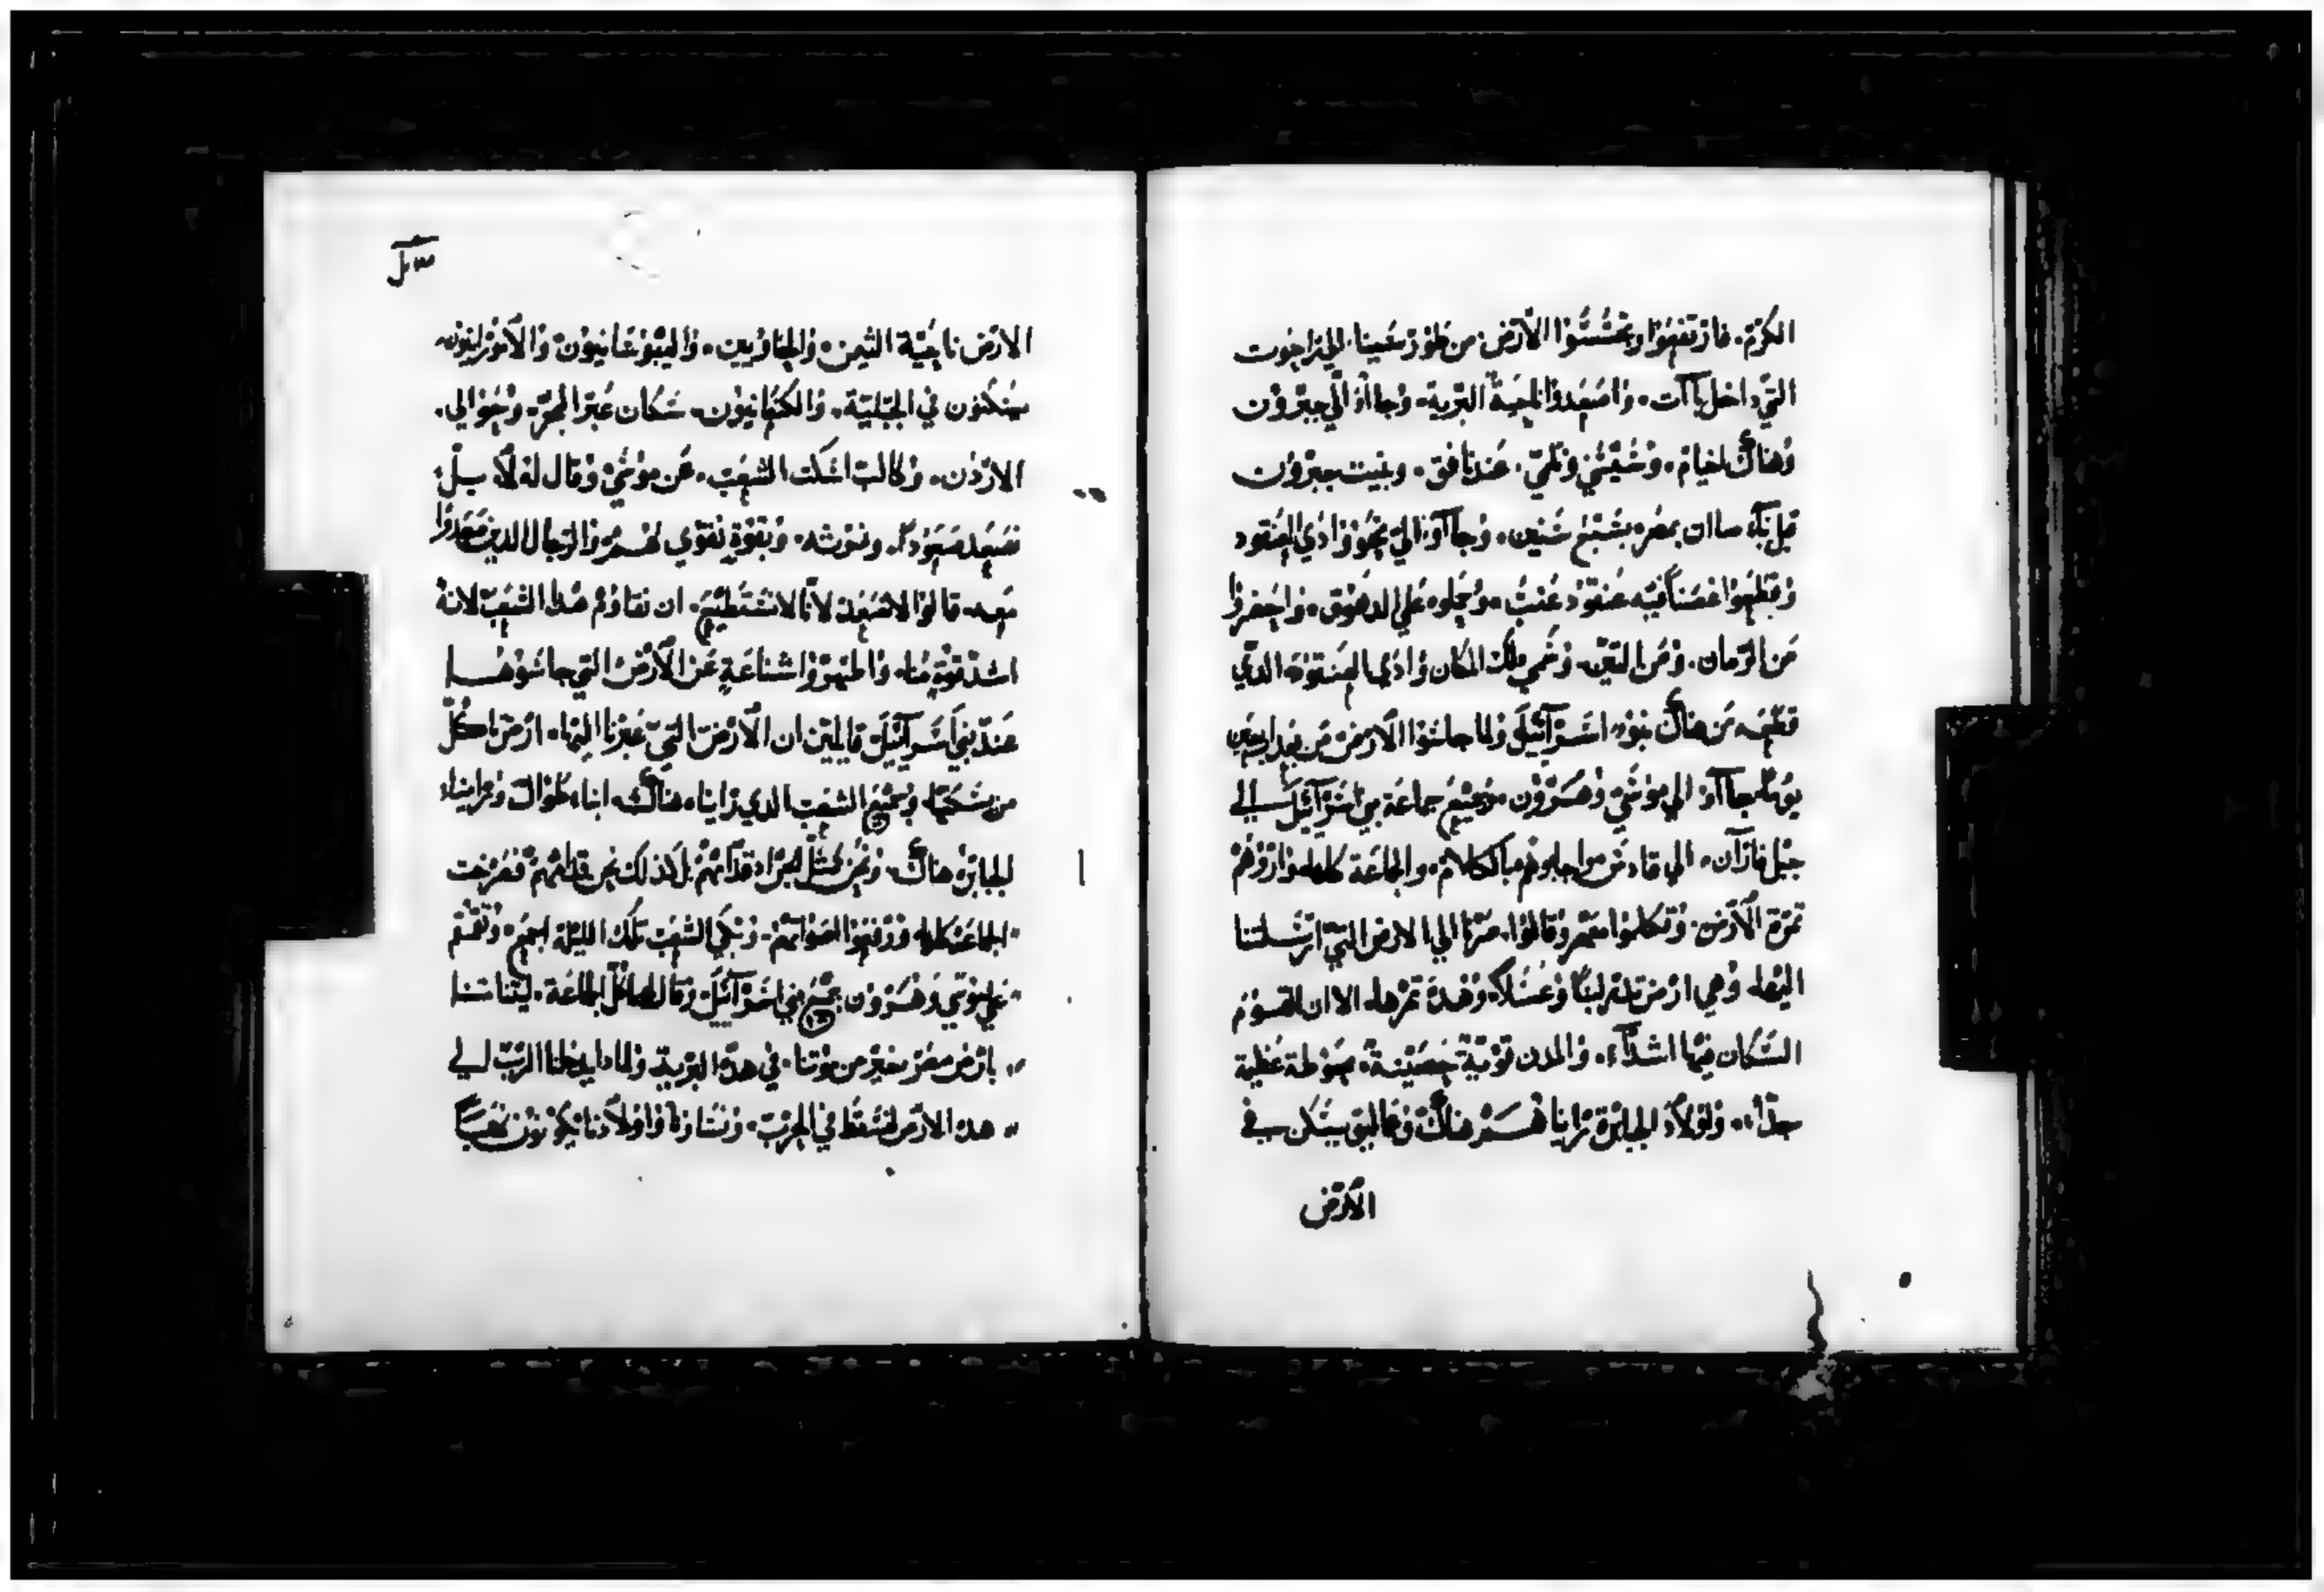 الكرم. فارتفعوا وتجسسوا الارض من طور سينا. الي راحوت
التي داخل يا آت. واصعدوا ناحية البرية. وجاآوا الي حبرون
وهناك اخيام. وشيشي وتلمي. عند نافق. وبنيت حبرون
قبل بناء صاان بمصر بسبع سنين. وجاآوا الي نحو وادي العنقود
وقطعوا غصناً فيه عنقود عنب. وحملوه علي الدهوق. واحضروا
من الرمان. ومن التين. وسمي ملك المكان وادي العنقود الدي
قطعه من هناك بنو اسرآئيل ولما جاسوا الارض من بعد اربعين
يوماً جاآوا الي موسي وهرون وجميع جماعة بني اسرآئيل الي
جبل فارآن. الي قادس واجابوهم بالكلام. والجماعة كلها واروهم
تمرة الارض. وتكلموا معهم وقالوا. صرنا الي الارض التي ارسلتنا
اليها. وهي ارض تدر لبناً وعسلاً. وهدة تمرها. الا ان القوم
السكان فيها اشدآء. والمدن قوية حصينة. بحوطة عظيمة
جداً. واولاد الجبابرة راينا هم هناك وعماليق يسكن في
الارض
الارض ناحية التيمن. والحتاويين. واليبوسانيون والامورانيون
يسكنون في الجبلية. والكنعانيون. سكان عبر البحر. وحوالي
الاردن. وكالب اسكت الشعب. عن موسي وقال له لا بل
نصعد صعوداً. ونورثه. وبقوة نقوي لهم والرجال الدين صعدوا
معه. قالوا لا نصعد لانا لا نستطيع. ان نقاوم هدا الشعب لانه
اشد قوة منا. واظهروا شناعة عن الارض التي جاسوها
عند بني اسرآئيل قايلين ان الارض التي عبرنا اليها. ارض تاكل
من سكنها. وجميع الشعب الدي راينا. هناك. ابناء طوال وراينا
الجبابرة هناك. ونحن كمثل الجراد قدامهم بل كدلك نحن قدامهم فصرخت
الجماعة كلها. ورفعوا اصواتهم. وبكي الشعب تلك الليلة اجمع. وتقمقم
علي موسي وهرون جميع بني اسرآئيل وقال لهما كل الجماعة. ليتنا متنا
بارض مصر خير من موتنا. في هده البرية ولمادا يدخلنا الرب الي
هده الارض لنسقط في الحرب. ونساونا واولادنا يكونون نهباً